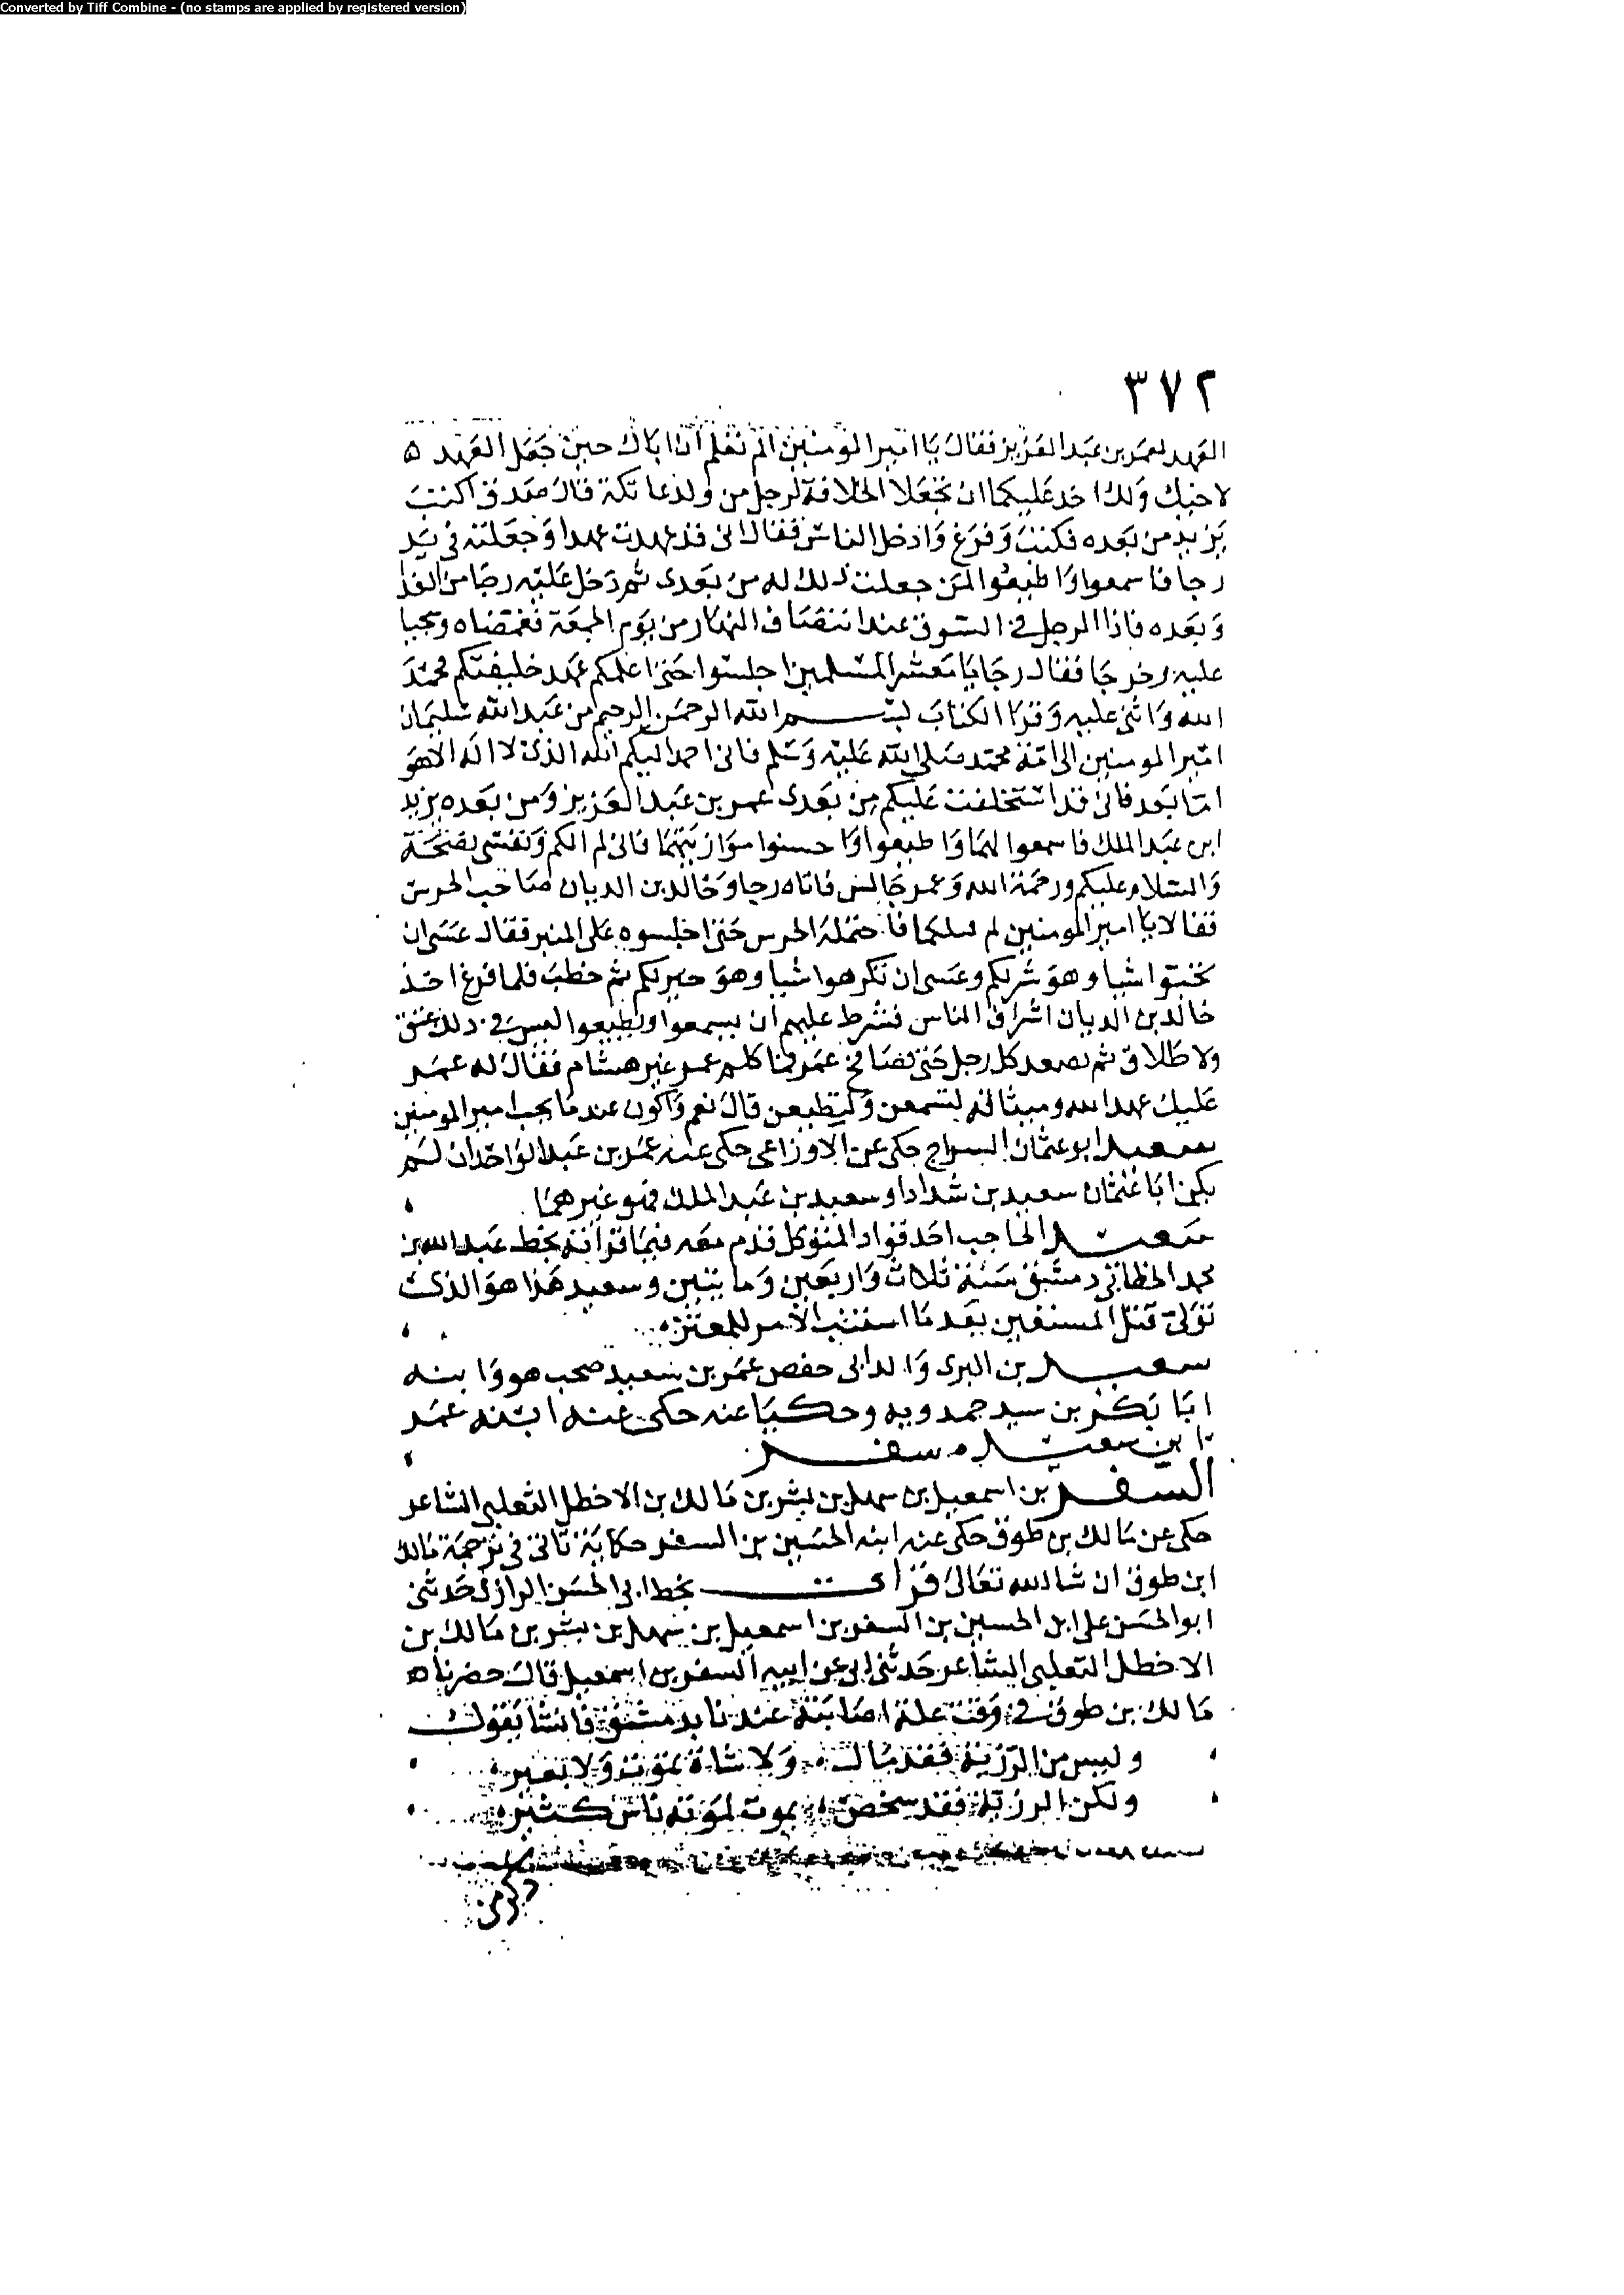 Converted by Tiff Combine - (no stamps are applied by registered version)
٣٧٢
العهد لعمر بن عبد العزيز فقال يا امير المومنين الم تعلم ان اباك حين جعل العهد ه
لاخيك ولك اخذ عليكما ان تجعلا الخلافة لرجل من ولد عاتكة قال صدق اكتب
يزيد من بعده فكتب وفرغ وادخل الناس فقال انى قد عهدت عهدا وجعلته في يد
رجا فاسمعوا واطيعوا لمن جعلت ذلك له من بعدى ثم دخل عليه رجا من الغد
وبعده فاذا الرجل في السوق عند انتصاف النهار من يوم الجمعة فغمضاه وسجيا
عليه وخرجا فقال رجا يا معشر المسلمين اجلسوا حتى اعلمكم عهد خليفتكم فحمد
الله واثنى عليه وقرا الكتاب بسم الله الرحمن الرحيم من عبد الله سليمان
امير المومنين الى امة محمد صلى الله عليه وسلم فانى احمد اليكم الله الذى لا اله الا هو
اما بعد فانى قد استخلفت عليكم من بعدى عمر بن عبد العزيز ومن بعده يزيد
ابن عبد الملك فاسمعوا لهما واطيعوا واحسنوا موازرتهما فانى لم الكم ونفسى نصيحة
والسلام عليكم ورحمة الله وعمر جالس فاتاه رجا وخالد بن الديان صاحب الحرس
فقالا يا امير المومنين لم فاحتمله الحرس حتى اجلسوه على المنبر فقال عسى ان
تحبوا شيا وهو شر لكم وعسى ان تكرهوا شيا وهو خير لكم ثم خطب فلما فرغ اخذ
خالد بن الديان اشراف الناس فشرط عليهم ان يسمعوا ويطيعوا ليس في ذلك عتق
ولا طلاق ثم يصعد كل رجل حتى يصافح عمر فما كلم عمر غير هشام فقال له عمر
عليك عهد الله وميثاقه لتسمعن ولتطيعن قال نعم واكون عند ما يجب امير المومنين
سعيد ابو عثمان السراج حكى عن الاوزاعى حكى عنه عمر بن عبد الواحد ان لم
يكن ابا عثمان سعيد بن شداد او سعيد بن عبد الملك فهو غيرهما
سعيد الحاجب احد قواد المتوكل قدم معه فيما قراته بخط عبد الله بن
محمد الخطابى دمشق سنة ثلاث واربعين ومايتين وسعيد هذا هو الذى
تولى قتل المستعين بعد ما استتب الامر للمعتز
سعيد بن البرى والد ابى حفص عمر بن سعيد صحب هو وابنه
ابا بكر بن سيد حمدويه وحكيا عنه حكى عنه ابنه عمر
ابن سعيد ه سفر
السفر بن اسمعيل بن سهل بن بشر بن مالك بن الاخطل التغلبى الشاعر
حكى عن مالك بن طوق حكى عنه ابنه الحسين بن السفر حكاية تاتى في ترجمة مالك
ابن طوق ان شا الله تعالى قرات بخط ابى الحسن الرازى حدثنى
ابو الحسن على ابن الحسين بن السفر بن اسمعيل بن سهل بن بشر بن مالك بن
الاخطل التغلبى الشاعر حدثنى ابى عن ابيه السفر بن اسمعيل قال حضرنا ه
مالك بن طوق في وقت علة اصابته عندنا بدمشق فانشا يقول
وليس من الرزية فقد مال ولا شاة تموت ولا بعير
ولكن الرزية فقد شخص يموت لموته ناس كثير